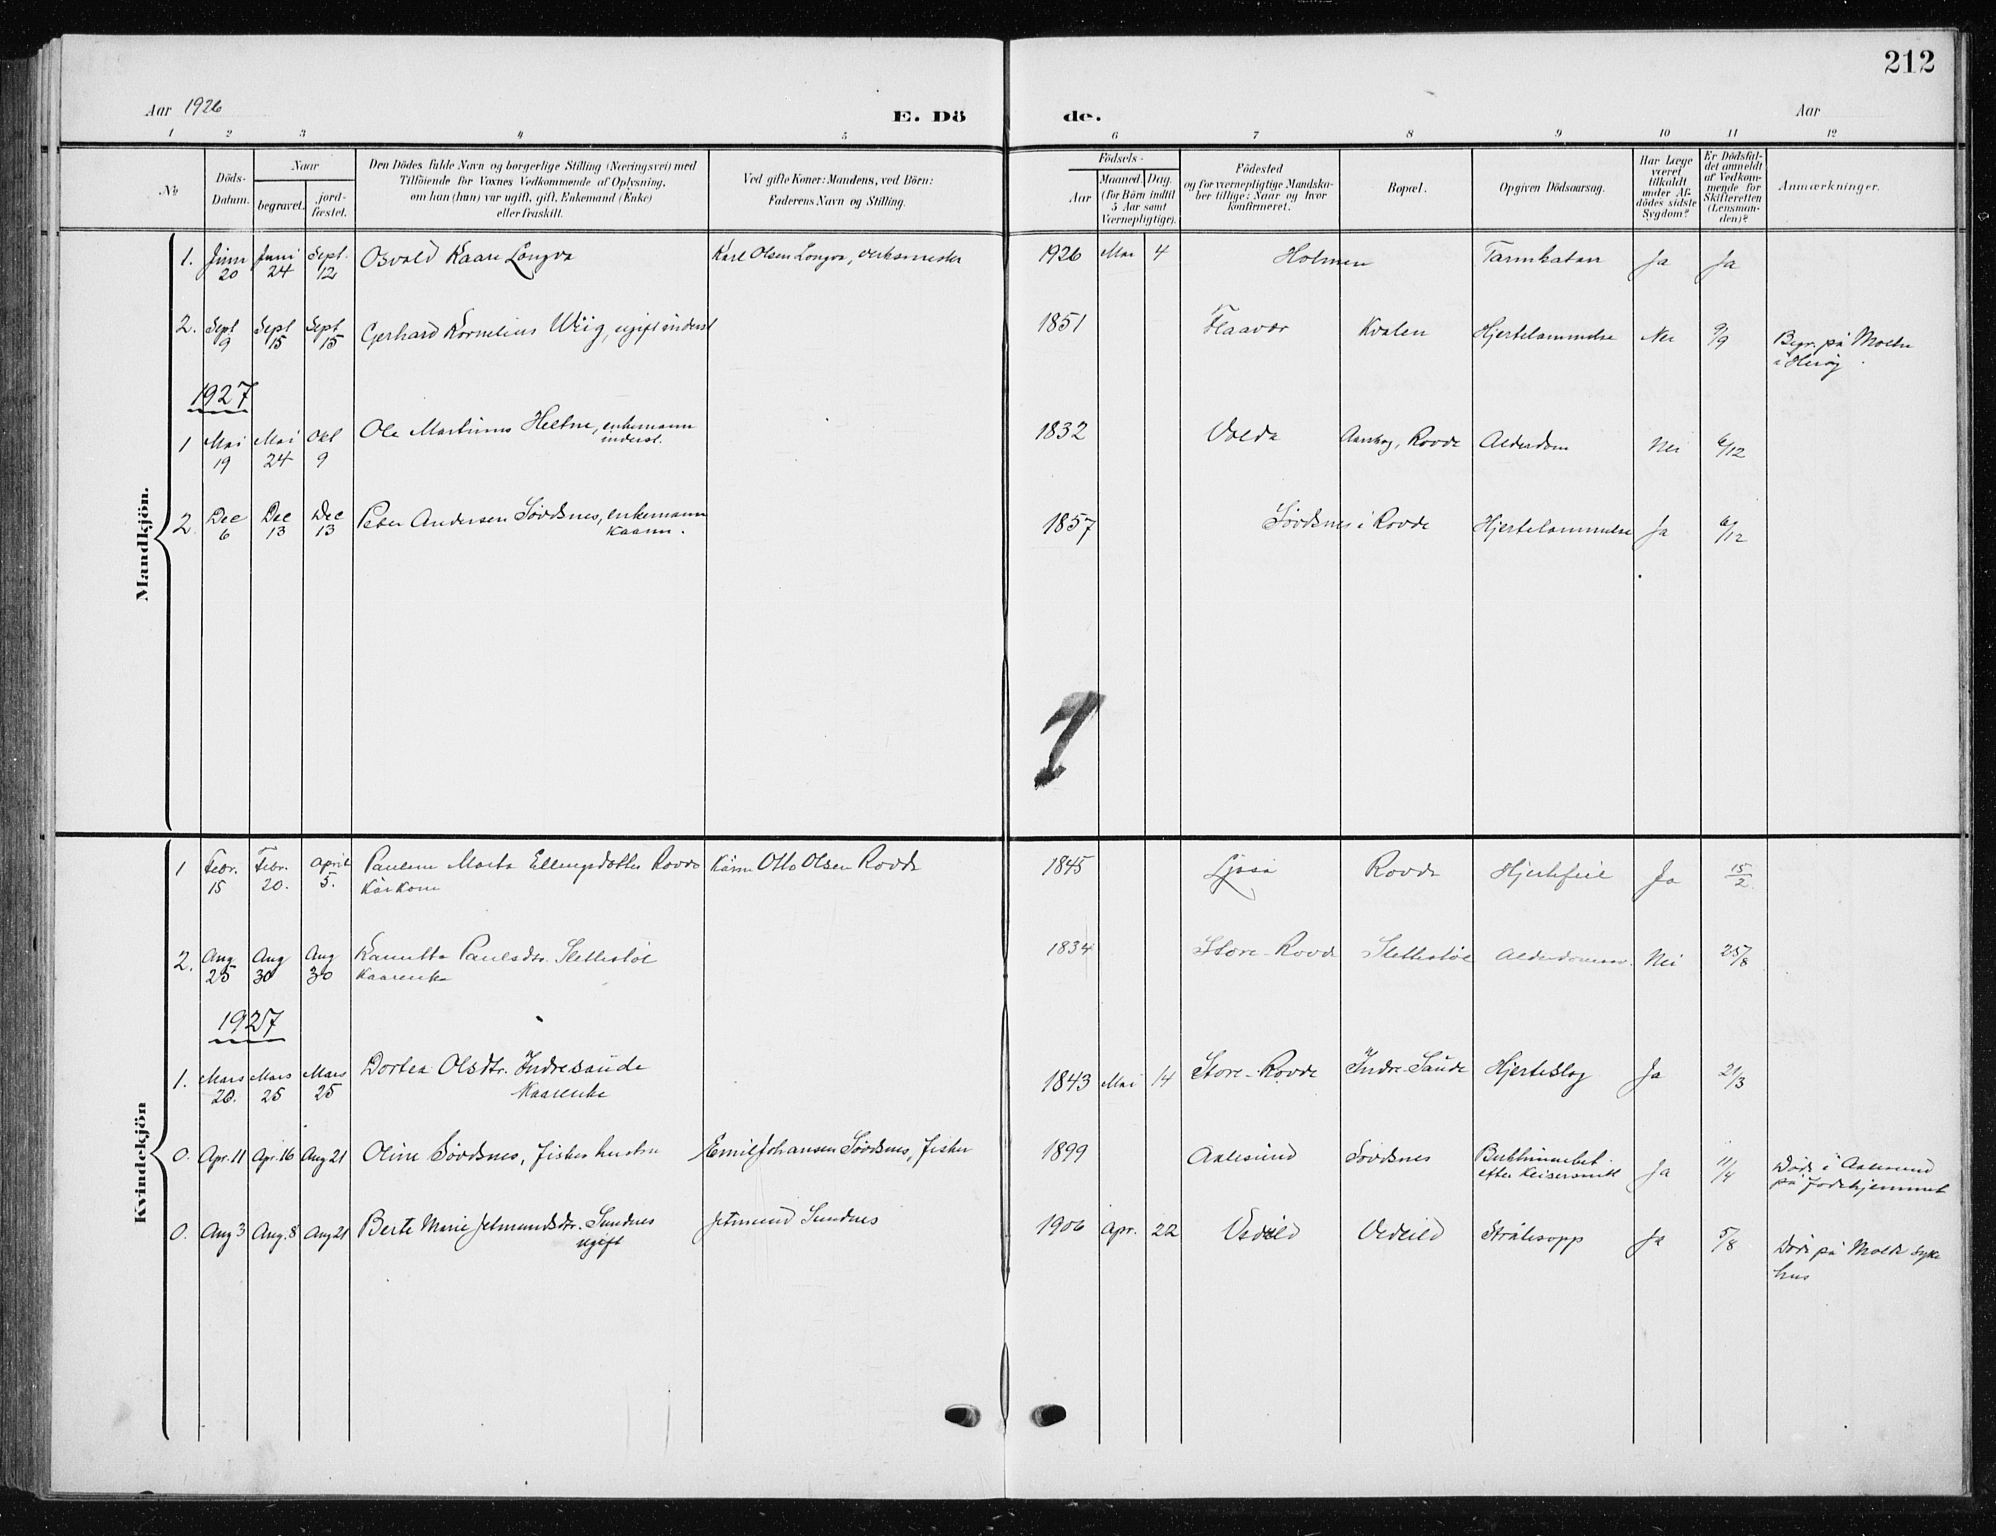 212
Aar 1926
E. Dö de.
Aar
1 2 3 4 5 6 7 8 9 10 11 12
№
Döds-Datum.
Naar
begravet.
jord-fæstet.
Den Dödes fulde Navn og borgerlige Stilling (Næringsvei) med
Tilföiende for Voxnes Vedkommende af Oplysning.
om han (hun) var ugift, gift, Enkemand (Enke)
eller fraskilt.
Ved gifte Koner: Mandens, ved Börn:
Faderens Navn og Stilling.
Födsels-
Aar
Maaned. Dag.
(for Börn indtil
5 Aar samt
Værnepligtige).
Födested
og for værnepligtige Mandska-
ber tillige: Naar og hvor
konfirmeret.
Bopæl.
Opgiven Dödsaarsag.
Har Læge
været
tilkaldt
under Af-
dödes sidste
Sygdom?
Er Dödsfal-
det anmeldt
af Vedkom-
mende for
Skifteretten
(Lensman-
den)?
Anmærkninger.
Mandkjön.
1. Juni 20 Juni 24 Sept. 12 Osvald Kaare Longva Karl Olsen Longva, verksmester 1926 Mai 4 Holmen Tarmkatarr Ja Ja
2. Sept 9 Sept 15 Sept 15 Gerhard Kornelius Wiig, ugift inderst 1851 Flaavær Kvalen Hjertelammelse Nei 9/9 Begr. på Moltu
i Herøy.
1927
1 Mai 19 Mai 24 Okt 9 Ole Martinus Heltne, enkemann
inderst. 1832 Volda Aarskog, Rovde Alderdom Nei 6/12
2. Dec 6 Dec 13 Dec 13 Peter Andersen Sövdsnes, enkemann
Kaarm. 1857 Sövdsnes i Rovde Hjertelammelse Ja 6/12
Kvindekjön
1 Febr. 15 Febr. 20. April 5. Pauline Marta Ellingsdotter Rovde Kårm Otto Olsen Rovde 1845 Rovde Hjertefeil Ja 15/2
Kårkone
2. Aug 25 Aug 30 Aug 30 Paulsdtr. Slettestöl 1834 Store-Rovde Slettestöl Nei 25/8
Kaarenke
1927
1. Mars 20. Mars 25 Mars 25 Dortea Olsdtr. Indresaude
Kaarenke 1843 Mai 14 Store-Rovde Indre-Saude Hjerteslag Ja 21/3
0. Apr. 11 Apr. 16 Aug 21 Oline Sövdsnes, fisker hustru Emil Johansen Sövdsnes, fisker 1899 Aalesund Sövdsnes
efter Keisersnitt Ja 11/4 Döde i Aalesund
på fødehjemmet
0. Aug 3 Aug. 8 Aug 21 Berte Marie Jetmundsdtr. Sundnes
ugift Jetmund Sundnes 1906 Apr. 22 Vedeld Vedeld Strålesopp Ja 5/8 Döde på Molde syke
hus